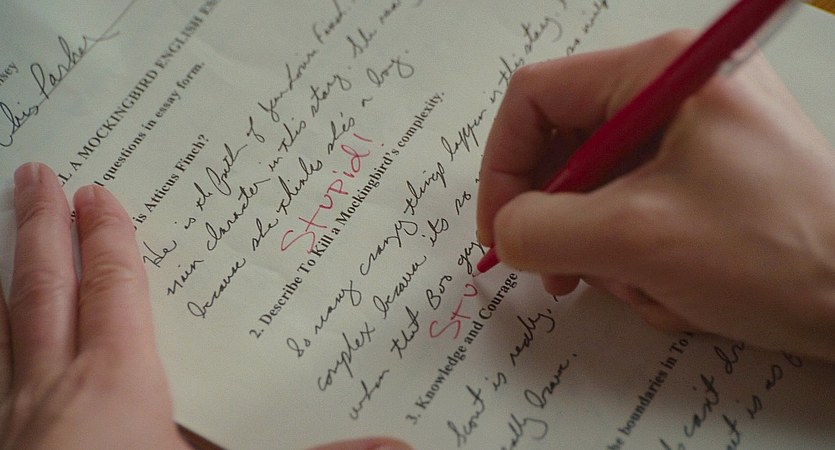 Parker
LL A MOCKINGBIRD ENGLISH
questions in essay form.
is Atticus Finch?
He is the of Jem Louis Finch.
main character in this story. She
because she thinks she's a boy.
Stupid!
2. Describe To Kill a Mockingbird's complexity.
So many crazy things happen in this story
complex because it's so
when that Boo guy
Stu
3. Knowledge and Courage
Scout is really
really brave.
he boundaries in To
can't
is as